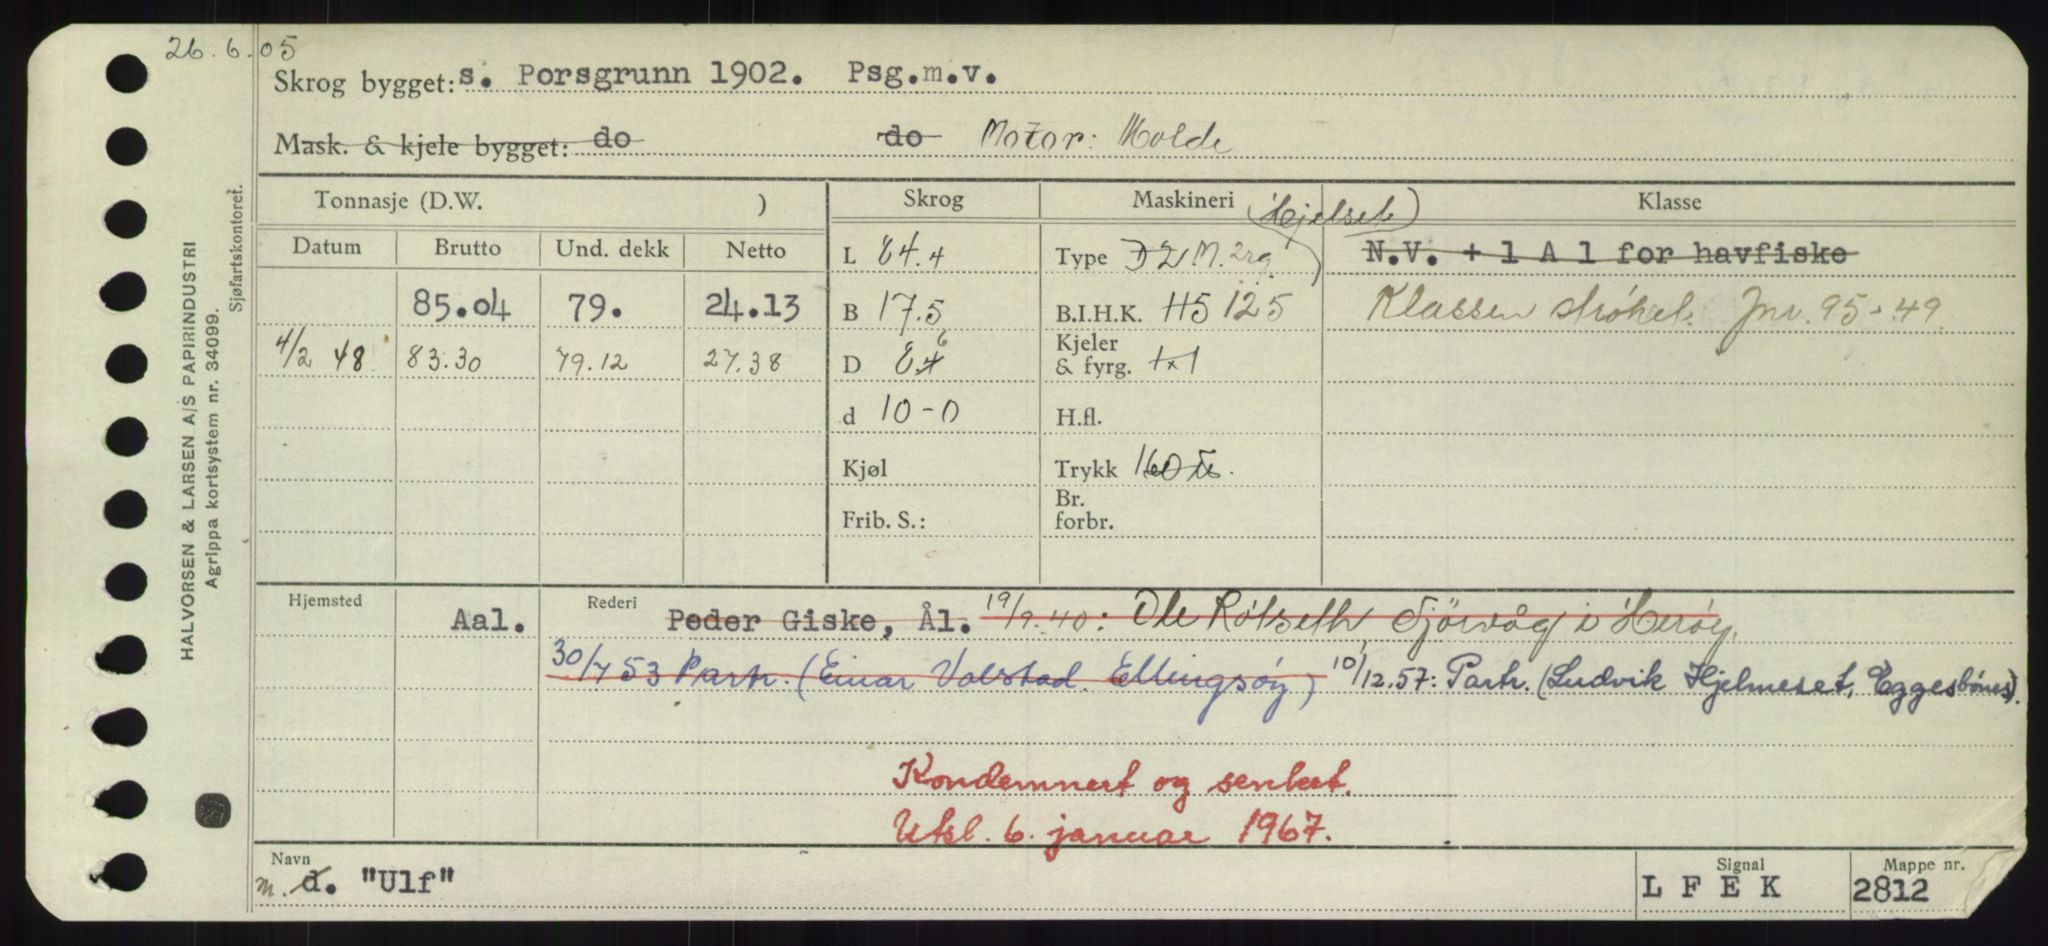 26.6.05
Skrog bygget: s. Porsgrunn 1902. Psg.m.v.
Mask. & kjele bygget: do do Motor: Molde
Tonnasje (D.W. ) Skrog Maskineri (Hjelset) Klasse
Datum Brutto Und. dekk Netto L 84.4 Type D 2 M. 2rg. N.V. + 1 A 1 for havfiske
85.04 79. 24.13 B 17.5 B.I.H.K. H5 125 Klassen strøket. Jnr. 95-49.
4/2 48 83.30 79.12 27.38 D 8.6 Kjeler & fyrg. 1x1
d 10-0 H.fl.
Kjøl Trykk 160
Frib. S.: Br. forbr.
Hjemsted Aal. Rederi Peder Giske, Ål. 19/9.40: Ole Røtseth, Sjörvåg i Herøy.
30/7 53 Partr. (Einar Valstad. Ellingsøy) 10/12.57: Partr. (Ludvik Hjelmeset, Eggesbønes).
Kondemnert og senket.
Utsl. 6. januar 1967.
Navn m. d. "Ulf" Signal LFEK Mappe nr. 2812
HALVORSEN & LARSEN A/S PAPIRINDUSTRI
Agrippa kortsystem nr. 34099.
Sjøfartskontoret.